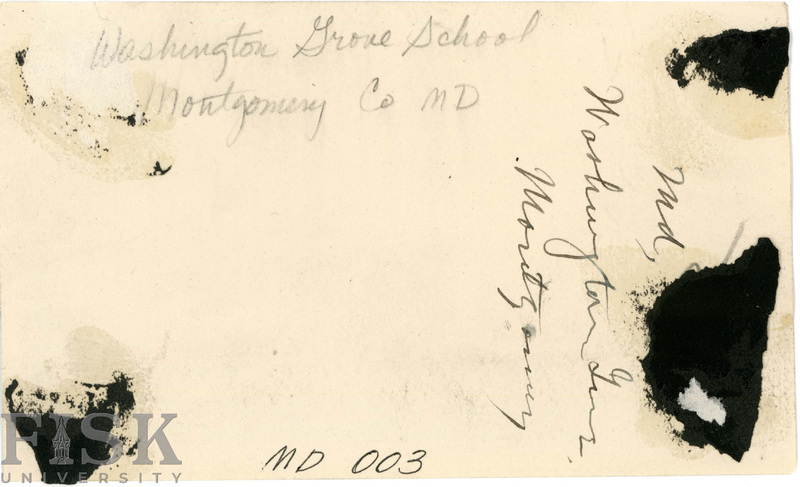 Washington Grove School
Montgomery Co MD
Md,
Washington
Montgomery
MD 003
FISK
UNIVERSITY